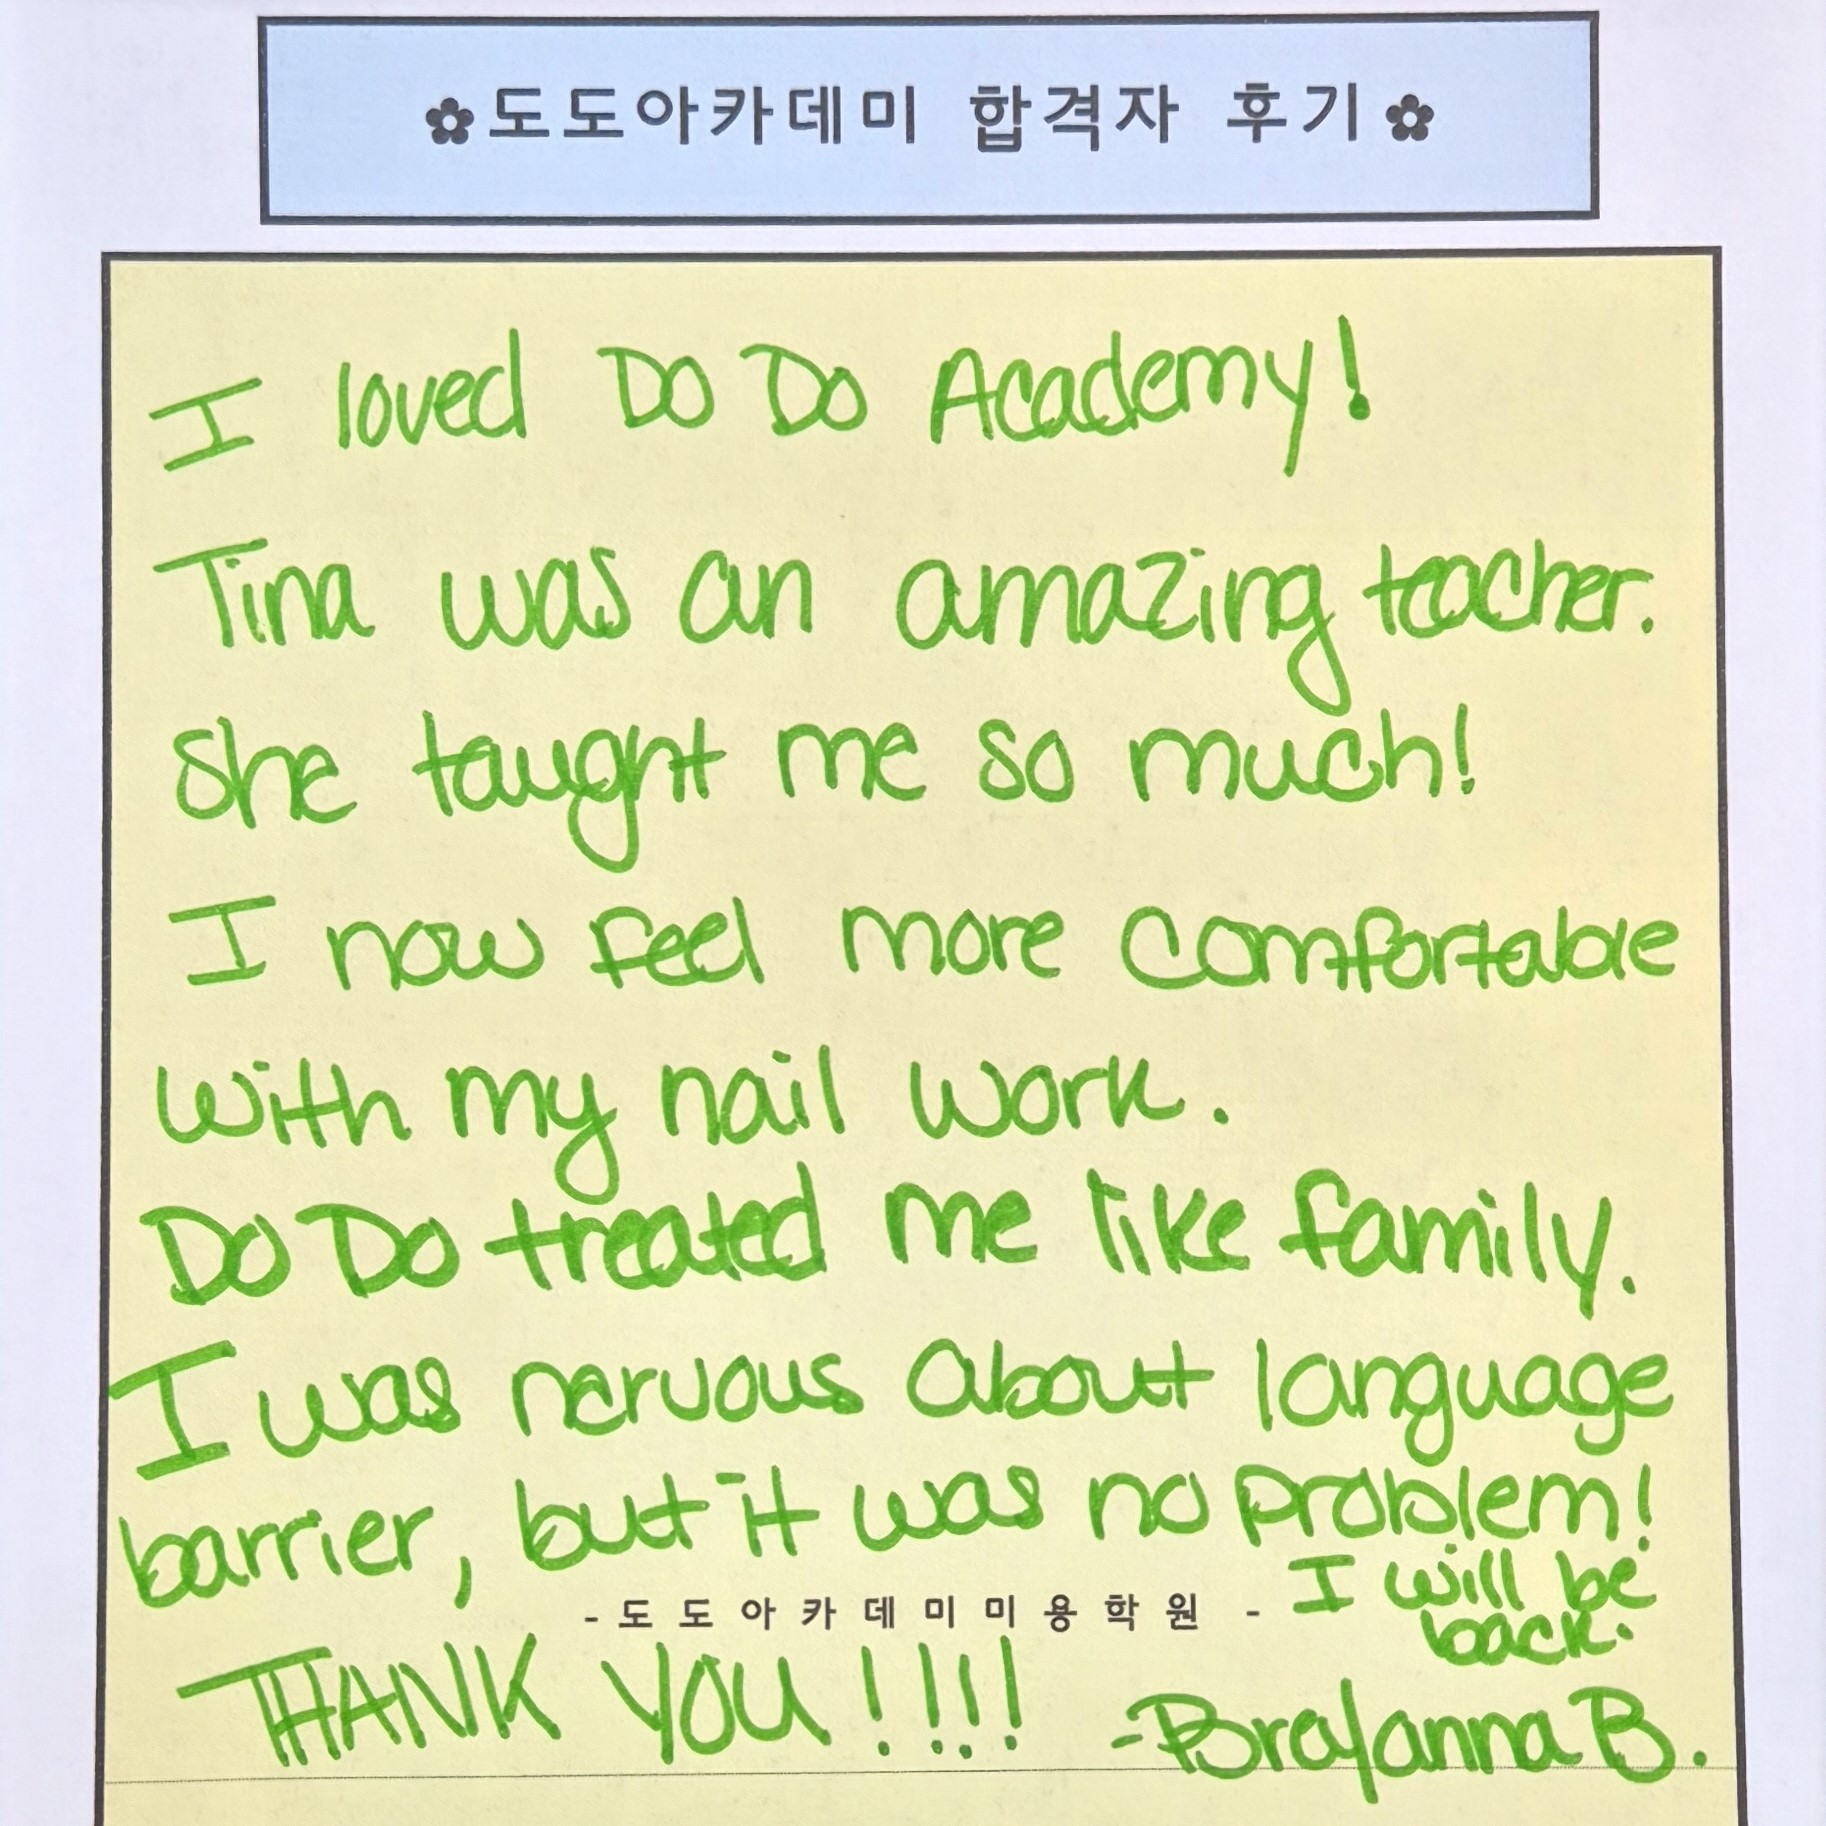 ✿도도아카데미 합격자 후기✿
I loved Do Do Academy!
Tina was an amazing teacher.
She taught me so much!
I now feel more comfortable
with my nail work.
Do Do treated me like family.
I was nervous about language
barrier, but it was no problem!
I will be
back.
-도도아카데미미용학원 -
THANK YOU!!!!
-Bralyanna B.